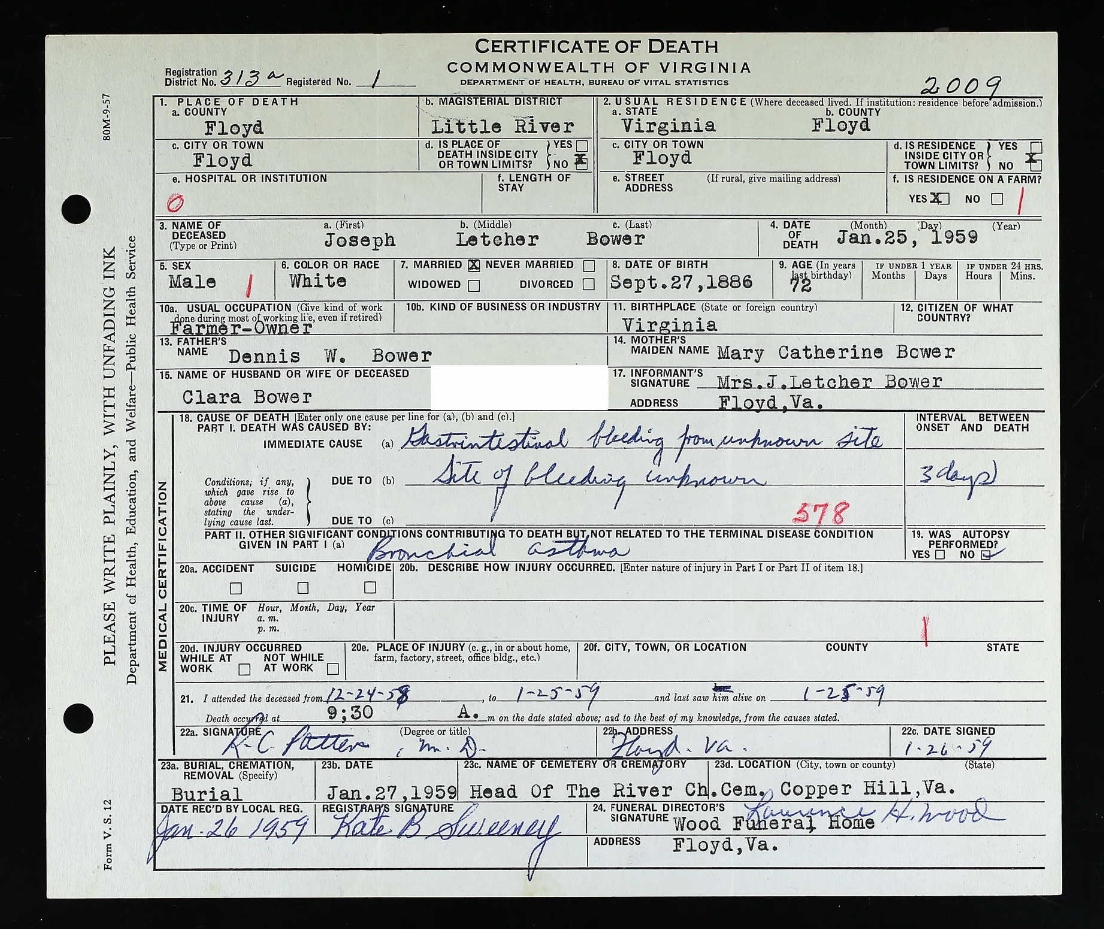 CERTIFICATE OF DEATH
COMMONWEALTH OF VIRGINIA
DEPARTMENT OF HEALTH, BUREAU OF VITAL STATISTICS
Registration District No. 313a Registered No. 1
2009
80M-9-57
PLEASE WRITE PLAINLY, WITH UNFADING INK
Department of Health, Education, and Welfare—Public Health Service
Form V. S. 12
1. PLACE OF DEATH
a. COUNTY
Floyd
b. MAGISTERIAL DISTRICT
Little River
2. USUAL RESIDENCE (Where deceased lived. If institution: residence before admission.)
a. STATE
Virginia
b. COUNTY
Floyd
c. CITY OR TOWN
Floyd
d. IS PLACE OF DEATH INSIDE CITY OR TOWN LIMITS? YES NO X
c. CITY OR TOWN
Floyd
d. IS RESIDENCE INSIDE CITY OR TOWN LIMITS? YES NO X
e. HOSPITAL OR INSTITUTION
0
f. LENGTH OF STAY
e. STREET ADDRESS (If rural, give mailing address)
f. IS RESIDENCE ON A FARM?
YES X NO 1
3. NAME OF DECEASED (Type or Print)
a. (First) b. (Middle) c. (Last)
Joseph Letcher Bower
4. DATE OF DEATH (Month) (Day) (Year)
Jan.25, 1959
5. SEX
Male 1
6. COLOR OR RACE
White
7. MARRIED X NEVER MARRIED
WIDOWED DIVORCED
8. DATE OF BIRTH
Sept.27,1886
9. AGE (In years last birthday)
72
IF UNDER 1 YEAR
Months Days
IF UNDER 24 HRS.
Hours Mins.
10a. USUAL OCCUPATION (Give kind of work done during most of working life, even if retired)
Farmer-Owner
10b. KIND OF BUSINESS OR INDUSTRY
11. BIRTHPLACE (State or foreign country)
Virginia
12. CITIZEN OF WHAT COUNTRY?
13. FATHER'S NAME Dennis W. Bower
14. MOTHER'S MAIDEN NAME Mary Catherine Bower
15. NAME OF HUSBAND OR WIFE OF DECEASED
Clara Bower
17. INFORMANT'S SIGNATURE Mrs.J.Letcher Bower
ADDRESS Floyd,Va.
MEDICAL CERTIFICATION
18. CAUSE OF DEATH [Enter only one cause per line for (a), (b) and (c).]
PART I. DEATH WAS CAUSED BY:
IMMEDIATE CAUSE (a) Gastrintestinal bleeding from unknown site
INTERVAL BETWEEN ONSET AND DEATH
Conditions, if any, which gave rise to above cause (a), stating the underlying cause last.
DUE TO (b) Site of bleeding unknown
3 days
DUE TO (c)
578
PART II. OTHER SIGNIFICANT CONDITIONS CONTRIBUTING TO DEATH BUT NOT RELATED TO THE TERMINAL DISEASE CONDITION GIVEN IN PART I (a)
Bronchial asthma
19. WAS AUTOPSY PERFORMED?
YES NO
20a. ACCIDENT SUICIDE HOMICIDE
20b. DESCRIBE HOW INJURY OCCURRED. [Enter nature of injury in Part I or Part II of item 18.]
20c. TIME OF INJURY Hour, Month, Day, Year
a. m.
p. m.
1
20d. INJURY OCCURRED
WHILE AT WORK NOT WHILE AT WORK
20e. PLACE OF INJURY (e. g., in or about home, farm, factory, street, office bldg., etc.)
20f. CITY, TOWN, OR LOCATION COUNTY STATE
21. I attended the deceased from 12-24-58, to 1-25-59 and last saw him alive on 1-25-59
Death occurred at 9;30 A. m on the date stated above; and to the best of my knowledge, from the causes stated.
22a. SIGNATURE (Degree or title)
R.C. Patter , M.D.
22b. ADDRESS
Floyd. Va.
22c. DATE SIGNED
1-26-59
23a. BURIAL, CREMATION, REMOVAL (Specify)
Burial
23b. DATE
Jan.27,1959
23c. NAME OF CEMETERY OR CREMATORY
Head Of The River Ch.Cem.
23d. LOCATION (City, town or county) (State)
Copper Hill,Va.
DATE REC'D BY LOCAL REG.
Jan. 26 1959
REGISTRAR'S SIGNATURE
Kate B Sweeney
24. FUNERAL DIRECTOR'S SIGNATURE Laurence H. Wood
Wood Funeral Home
ADDRESS Floyd,Va.